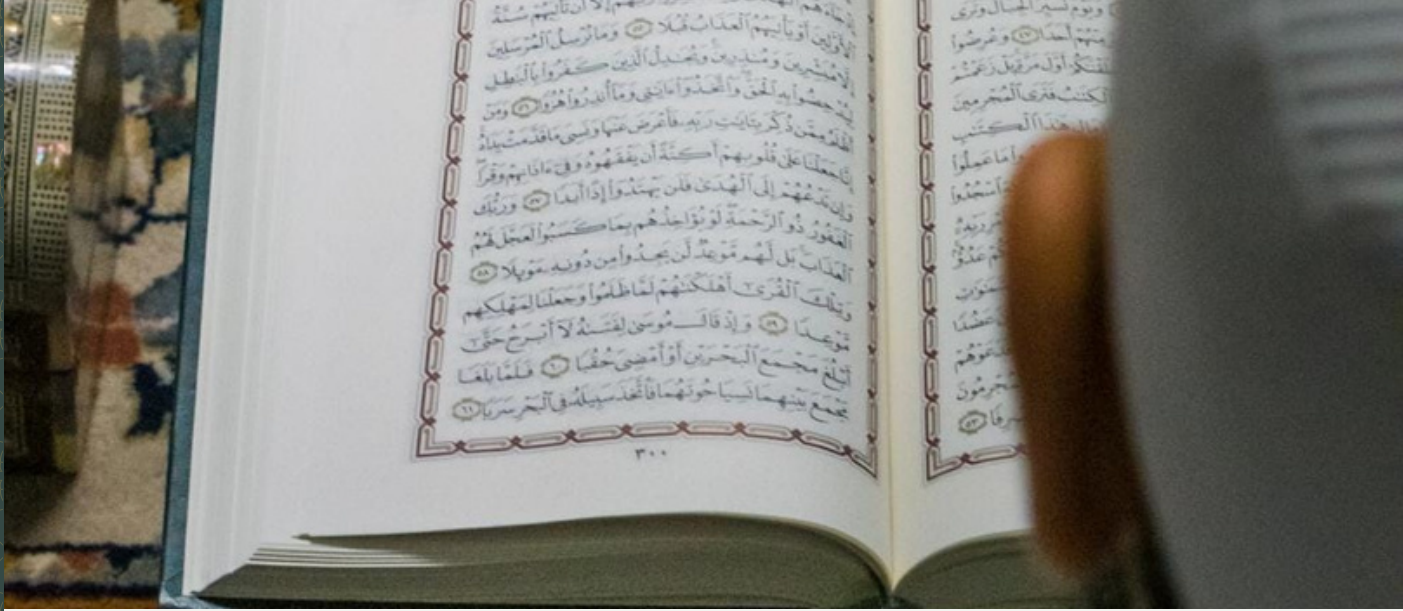 وَيَوْمَ نُسَيِّرُ ٱلْجِبَالَ وَتَرَى
مِنْهُمْ أَحَدًا ٤٧ وَعُرِضُوا۟
أَوَّلَ مَرَّةٍۭ بَلْ زَعَمْتُمْ
ٱلْكِتَٰبُ فَتَرَى ٱلْمُجْرِمِينَ
هَٰذَا ٱلْكِتَٰبِ
مَا عَمِلُوا۟
ٱسْجُدُوا۟
رَبِّهِۦٓ
عَدُوٌّۢ
عَضُدًا
ٱلْمُجْرِمُونَ
٥٣
إِذْ جَآءَهُمُ رَبَّهُمْ إِلَّآ أَن تَأْتِيَهُمْ سُنَّةُ
ٱلْأَوَّلِينَ أَوْ يَأْتِيَهُمُ ٱلْعَذَابُ قُبُلًا ٥٥ وَمَا نُرْسِلُ ٱلْمُرْسَلِينَ
إِلَّا مُبَشِّرِينَ وَمُنذِرِينَ وَيُجَٰدِلُ ٱلَّذِينَ كَفَرُوا۟ بِٱلْبَٰطِلِ
لِيُدْحِضُوا۟ بِهِ ٱلْحَقَّ وَٱتَّخَذُوٓا۟ ءَايَٰتِى وَمَآ أُنذِرُوا۟ هُزُوًا ٥٦ وَمَنْ
أَظْلَمُ مِمَّن ذُكِّرَ بِـَٔايَٰتِ رَبِّهِۦ فَأَعْرَضَ عَنْهَا وَنَسِىَ مَا قَدَّمَتْ يَدَاهُ
إِنَّا جَعَلْنَا عَلَىٰ قُلُوبِهِمْ أَكِنَّةً أَن يَفْقَهُوهُ وَفِىٓ ءَاذَانِهِمْ وَقْرًا
وَإِن تَدْعُهُمْ إِلَى ٱلْهُدَىٰ فَلَن يَهْتَدُوٓا۟ إِذًا أَبَدًا ٥٧ وَرَبُّكَ
ٱلْغَفُورُ ذُو ٱلرَّحْمَةِ لَوْ يُؤَاخِذُهُم بِمَا كَسَبُوا۟ لَعَجَّلَ لَهُمُ
ٱلْعَذَابَ بَل لَّهُم مَّوْعِدٌ لَّن يَجِدُوا۟ مِن دُونِهِۦ مَوْئِلًا ٥٨
وَتِلْكَ ٱلْقُرَىٰٓ أَهْلَكْنَٰهُمْ لَمَّا ظَلَمُوا۟ وَجَعَلْنَا لِمَهْلِكِهِم
مَّوْعِدًا ٥٩ وَإِذْ قَالَ مُوسَىٰ لِفَتَىٰهُ لَآ أَبْرَحُ حَتَّىٰٓ
أَبْلُغَ مَجْمَعَ ٱلْبَحْرَيْنِ أَوْ أَمْضِىَ حُقُبًا ٦٠ فَلَمَّا بَلَغَا
مَجْمَعَ بَيْنِهِمَا نَسِيَا حُوتَهُمَا فَٱتَّخَذَ سَبِيلَهُۥ فِى ٱلْبَحْرِ سَرَبًا ٦١
٣٠٠